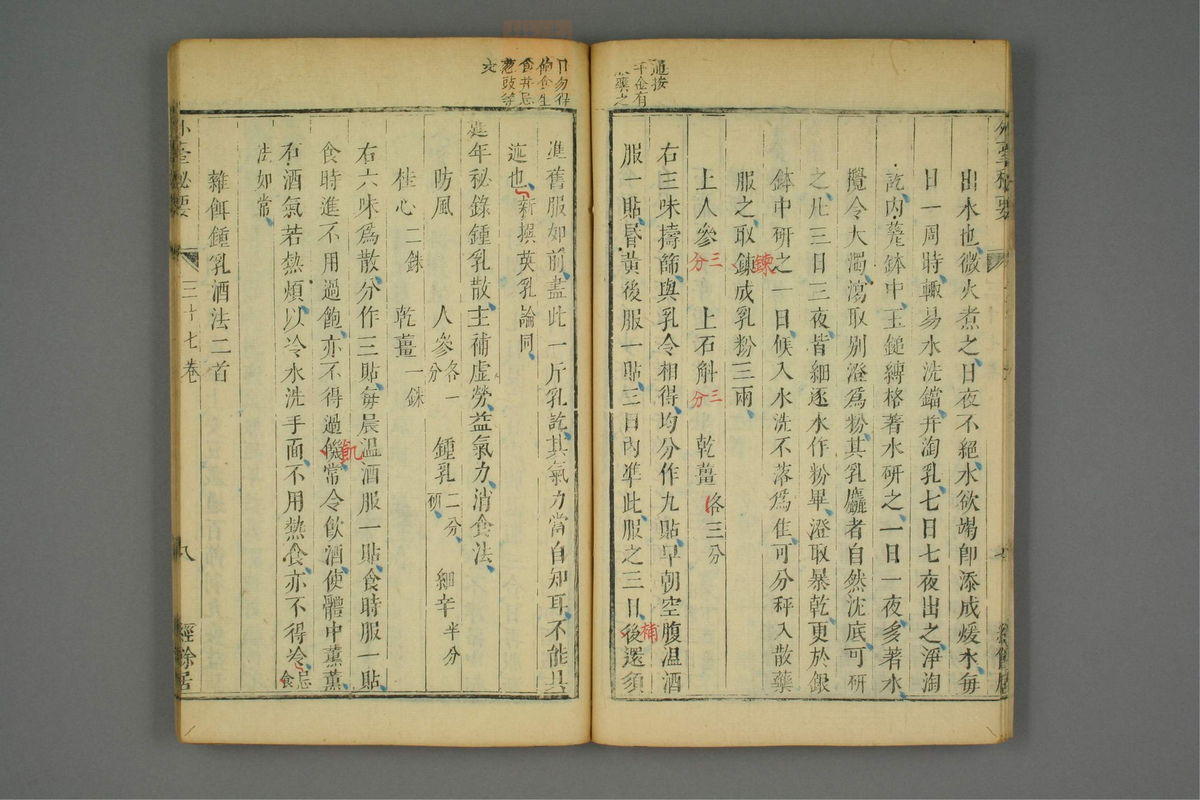 出水也微火煮之日夜不絕水欲竭即添成煖水每
日一周時輙易水洗鐺并淘乳七日七夜出之淨淘
訖內甆鉢中玉鎚縛格著水研之一日一夜多著水
攪令大濁瀉取別澄爲粉其乳麤者自然沈底可研
之凡三日三夜皆細逐水作粉畢澄取暴乾更於銀
鉢中研之一日候入水洗不落爲佳可分秤入散藥
服之取鍊成乳粉三兩
鍊
上人參 三分 上石斛 三分 乾薑 各三分
右三味擣篩與乳令相得均分作九貼早朝空腹温酒
服一貼昬黃後服一貼三日內準此服之三日後還須
補
準舊服如前盡此一斤乳訖其氣力當自知耳不能具
迹也新撰英乳論同
延年秘錄鍾乳散主補虛勞益氣力消食法
防風 人參 各一分 鍾乳 二分研 細辛 半分
桂心 二銖 乾薑 一銖
右六味爲散分作三貼每晨温酒服一貼食時服一貼
食時進不用過飽亦不得過饑常令飲酒使體中薰薰
飢
若酒氣若熱煩以冷水洗手面不用熱食亦不得冷食忌
法如常
雜餌鍾乳酒法二首
外臺秘要 三十七卷 八 經餘居